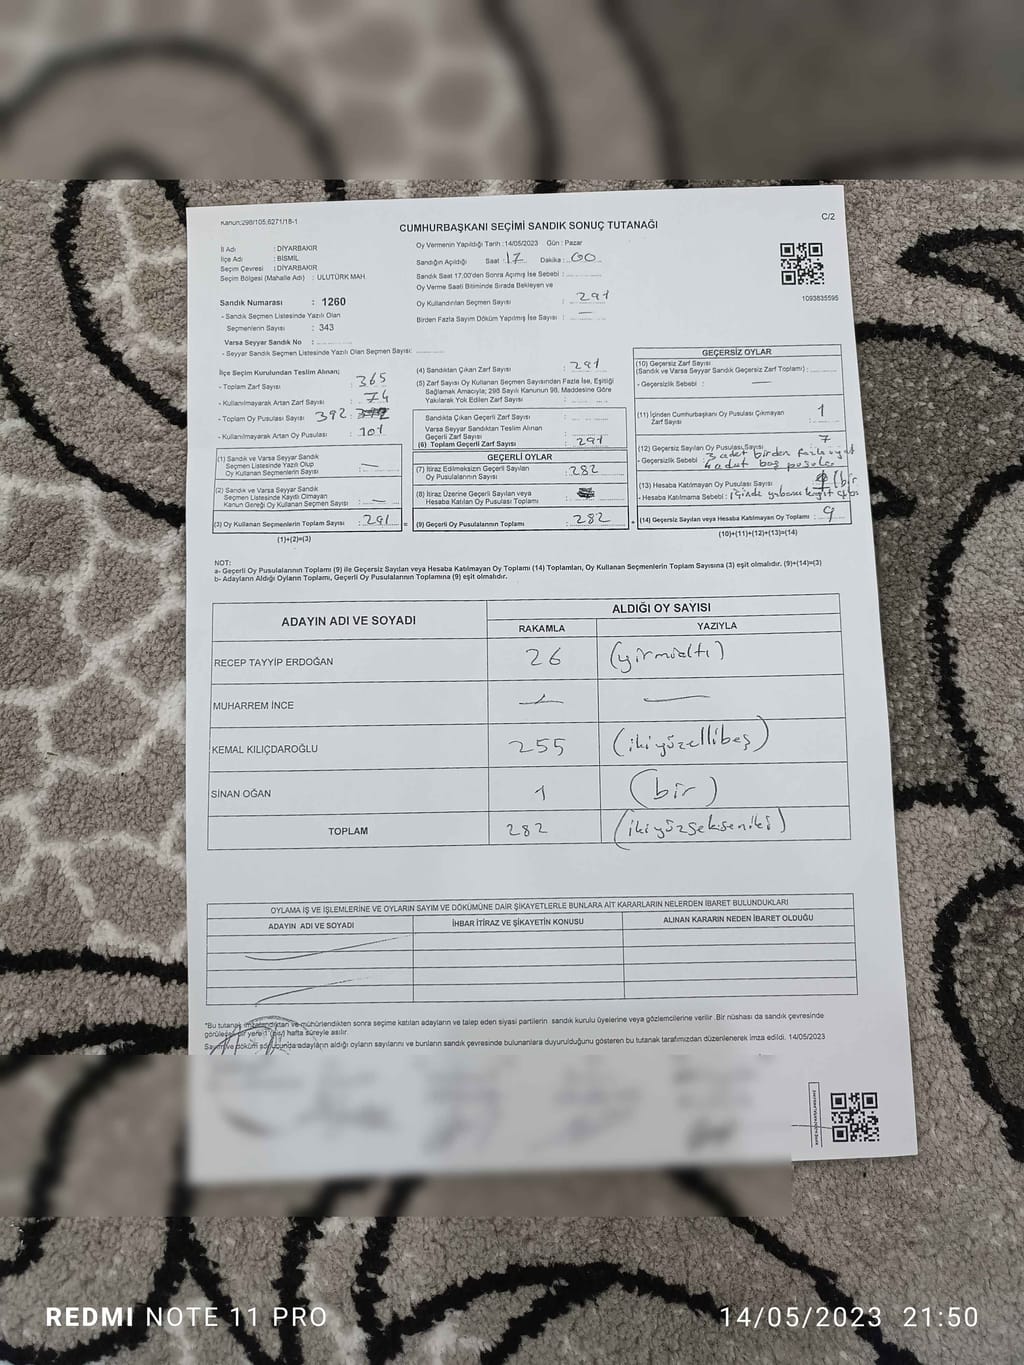 Kanun:298/105,6271/18-1
C/2
CUMHURBAŞKANI SEÇİMİ SANDIK SONUÇ TUTANAĞI
İl Adı : DİYARBAKIR
İlçe Adı : BİSMİL
Seçim Çevresi : DİYARBAKIR
Seçim Bölgesi (Mahalle Adı) : ULUTÜRK MAH.
Sandık Numarası : 1260
- Sandık Seçmen Listesinde Yazılı Olan
Seçmenlerin Sayısı : 343
Varsa Seyyar Sandık No :
- Seyyar Sandık Seçmen Listesinde Yazılı Olan Seçmen Sayısı:
Oy Vermenin Yapıldığı Tarih :14/05/2023 Gün : Pazar
Sandığın Açıldığı Saat : 17 Dakika : 00
Sandık Saat 17:00'den Sonra Açımış İse Sebebi :
Oy Verme Saati Bitiminde Sırada Bekleyen ve
Oy Kullandırılan Seçmen Sayısı : 291
Birden Fazla Sayım Döküm Yapılmış İse Sayısı : —
1093835595
İlçe Seçim Kurulundan Teslim Alınan;
- Toplam Zarf Sayısı : 365
- Kullanılmayarak Artan Zarf Sayısı : 74
- Toplam Oy Pusulası Sayısı 392
- Kullanılmayarak Artan Oy Pusulası : 101
(1) Sandık ve Varsa Seyyar Sandık
Seçmen Listesinde Yazılı Olup
Oy Kullanan Seçmenlerin Sayısı : —
(2) Sandık ve Varsa Seyyar Sandık
Seçmen Listesinde Kaydı Olmayan
Kanun Gereği Oy Kullanan Seçmen Sayısı : —
(3) Oy Kullanan Seçmenlerin Toplam Sayısı : 291
(1)+(2)=(3)
(4) Sandıktan Çıkan Zarf Sayısı : 291
(5) Zarf Sayısı Oy Kullanan Seçmen Sayısından Fazla İse, Eşitliği
Sağlamak Amacıyla; 298 Sayılı Kanunun 98. Maddesine Göre
Yakılarak Yok Edilen Zarf Sayısı :
Sandıkta Çıkan Geçerli Zarf Sayısı :
Varsa Seyyar Sandıktan Teslim Alınan
Geçerli Zarf Sayısı :
(6) Toplam Geçerli Zarf Sayısı : 291
GEÇERLİ OYLAR
(7) İtiraz Edilmeksizin Geçerli Sayılan
Oy Pusulasının Sayısı : 282
(8) İtiraz Üzerine Geçerli Sayılan veya
Hesaba Katılan Oy Pusulası Toplamı :
(9) Geçerli Oy Pusulalarının Toplamı : 282
GEÇERSİZ OYLAR
(10) Geçersiz Zarf Sayısı
(Sandık ve Varsa Seyyar Sandık Geçersiz Zarf Toplamı) :
- Geçersizlik Sebebi : —
(11) İçinden Cumhurbaşkanı Oy Pusulası Çıkmayan
Zarf Sayısı : 1
(12) Geçersiz Sayılan Oy Pusulası Sayısı : 7
- Geçersizlik Sebebi : 3 adet birden fazla oyat
4 adet boş pusula
(13) Hesaba Katılmayan Oy Pusulası Sayısı : (bir
- Hesaba Katılmama Sebebi : içinde yabancı kağıt
(14) Geçersiz Sayılan veya Hesaba Katılmayan Oy Toplamı : 9
(10)+(11)+(12)+(13)=(14)
NOT:
a- Geçerli Oy Pusulalarının Toplamı (9) ile Geçersiz Sayılan veya Hesaba Katılmayan Oy Toplamı (14) Toplamları, Oy Kullanan Seçmenlerin Toplam Sayısına (3) eşit olmalıdır. (9)+(14)=(3)
b- Adayların Aldığı Oyların Toplamı, Geçerli Oy Pusulalarının Toplamına (9) eşit olmalıdır.
ADAYIN ADI VE SOYADI
ALDIĞI OY SAYISI
RAKAMLA YAZIYLA
RECEP TAYYİP ERDOĞAN 26 (yirmialtı)
MUHARREM İNCE — —
KEMAL KILIÇDAROĞLU 255 (ikiyüzellibeş)
SİNAN OĞAN 1 (bir)
TOPLAM 282 (ikiyüzsekseniki)
OYLAMA İŞ VE İŞLEMLERİNE VE OYLARIN SAYIM VE DÖKÜMÜNE DAİR ŞİKAYETLERLE BUNLARA AİT KARARLARIN NELERDEN İBARET BULUNDUKLARI
ADAYIN ADI VE SOYADI İHBAR İTİRAZ VE ŞİKAYETİN KONUSU ALINAN KARARIN NEDEN İBARET OLDUĞU
*Bu tutanak imzalandıktan ve mühürlendikten sonra seçime katılan adayların ve talep eden siyasi partilerin sandık kurulu üyelerine veya gözlemcilerine verilir .Bir nüshası da sandık çevresinde
görülecek bir yere 1 (bir) hafta süreyle asılır.
Sayım ve döküm sonucunda adayların aldığı oyların sayılarını ve bunların sandık çevresinde bulunanlara duyurulduğunu gösteren bu tutanak tarafımızdan düzenlenerek imza edildi. 14/05/2023
REDMI NOTE 11 PRO
14/05/2023 21:50